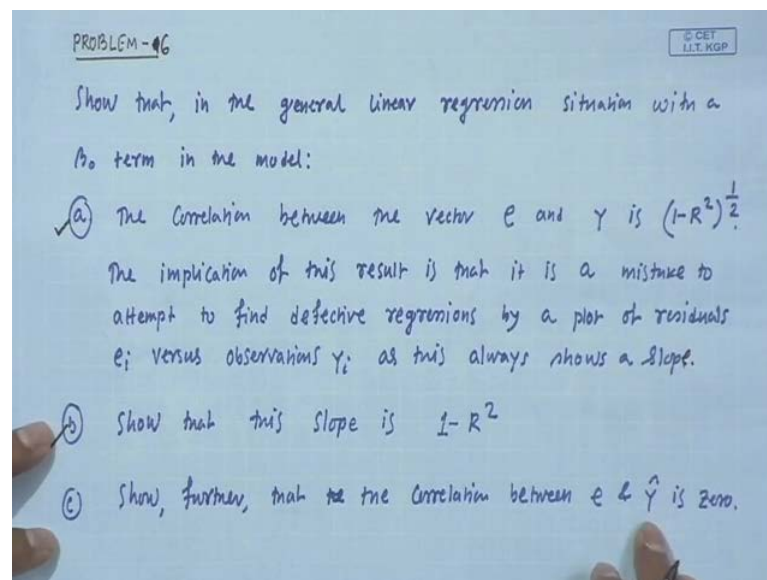 PROBLEM-16
© CET
I.I.T. KGP
Show that, in the general linear regression situation with a
β₀ term in the model:
(a) The Correlation between the vector e and Y is (1-R²)^{1/2}.
The implication of this result is that it is a mistake to
attempt to find defective regressions by a plot of residuals
eᵢ versus observations Yᵢ as this always shows a slope.
(b) Show that this slope is 1-R²
(c) Show, further, that the correlation between e & Ŷ is zero.